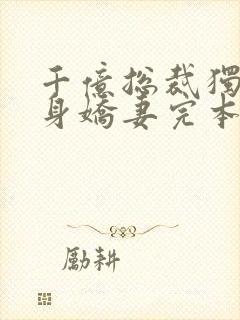 千億总裁獨
身嬌妻完本
勵耕